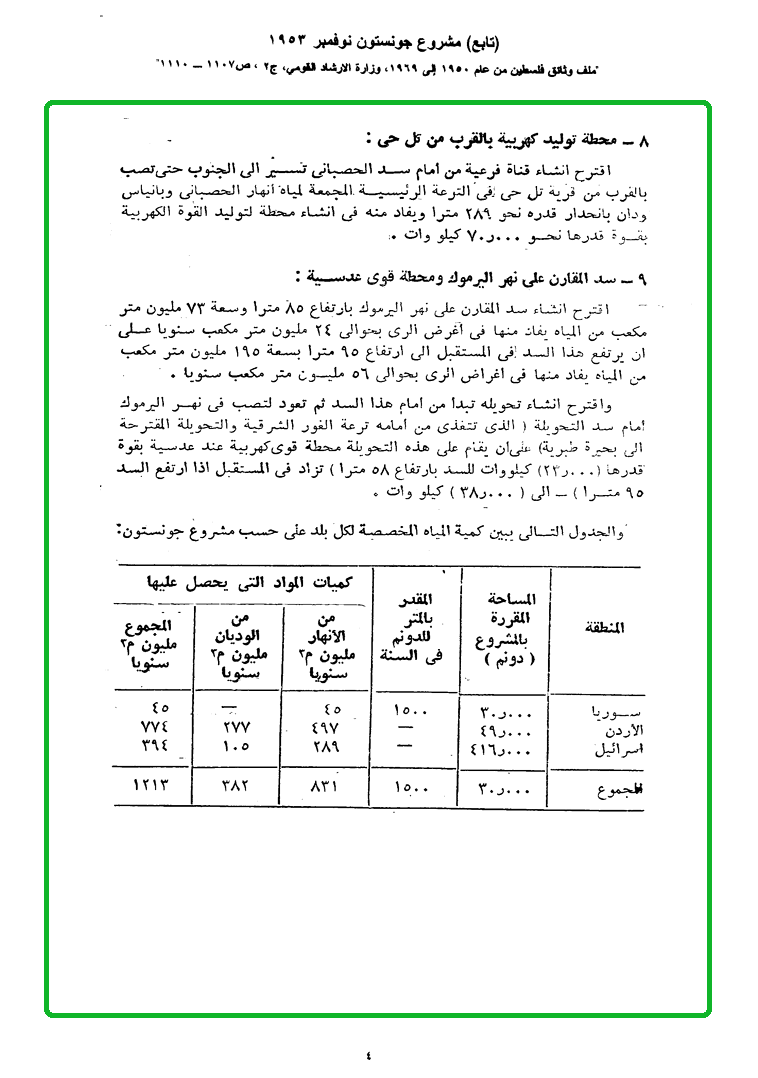 (تابع) مشروع جونستون نوفمبر ١٩٥٣
"ملف وثائق فلسطين من عام ١٩٥٠ إلى ١٩٦٩، وزارة الارشاد القومي، ج٢ ، ص١١٠٧ – ١١١٠"
٨ – محطة توليد كهربية بالقرب من تل حى :
اقترح انشاء قناة فرعية من أمام سد الحصبانى تسير الى الجنوب حتى تصب
بالقرب من قرية تل حى فى الترعة الرئيسية المجمعة لمياه أنهار الحصبانى وبانياس
ودان بانحدار قدره نحو ٢٨٩ مترا ويفاد منه فى انشاء محطة لتوليد القوة الكهربية
بقوة قدرها نحو ٧٠ر٠٠٠ كيلو وات .
٩ – سد المقارن على نهر اليرموك ومحطة قوى عدسية :
اقترح انشاء سد المقارن على نهر اليرموك بارتفاع ٨٥ مترا وسعة ٧٣ مليون متر
مكعب من المياه يفاد منها فى أغرض الرى بحوالى ٢٤ مليون متر مكعب سنويا على
ان يرتفع هذا السد فى المستقبل الى ارتفاع ٩٥ مترا بسعة ١٩٥ مليون متر مكعب
من المياه يفاد منها فى اغراض الرى بحوالى ٥٦ مليون متر مكعب سنويا .
واقترح انشاء تحويله تبدأ من أمام هذا السد ثم تعود لتصب فى نهر اليرموك
أمام سد التحويلة ( الذى تتغذى من امامه ترعة الغور الشرقية والتحويلة المقترحة
الى بحيرة طبرية) على ان يقام على هذه التحويلة محطة قوى كهربية عند عدسية بقوة
قدرها (٢٣ر٠٠٠) كيلووات للسد بارتفاع ٥٨ مترا ) تزاد فى المستقبل اذا ارتفع السد
٩٥ مترا ) – الى ( ٣٨ر٠٠٠ ) كيلو وات .
والجدول التالى يبين كمية المياه المخصصة لكل بلد على حسب مشروع جونستون:
المنطقة | المساحة المقررة بالمشروع ( دونم ) | المقدر بالمتر للدونم فى السنة | كميات المواد التى يحصل عليها
من الأنهار مليون م٣ سنويا | من الوديان مليون م٣ سنويا | المجموع مليون م٣ سنويا
سوريا ٣٠ر٠٠٠ ١٥٠٠ ٤٥ — ٤٥
الأردن ٤٩ر٠٠٠ — ٤٩٧ ٢٧٧ ٧٧٤
اسرائيل ٤١٦ر٠٠٠ — ٢٨٩ ١٠٥ ٣٩٤
المجموع ٣٠ر٠٠٠ ١٥٠٠ ٨٣١ ٣٨٢ ١٢١٣
٤